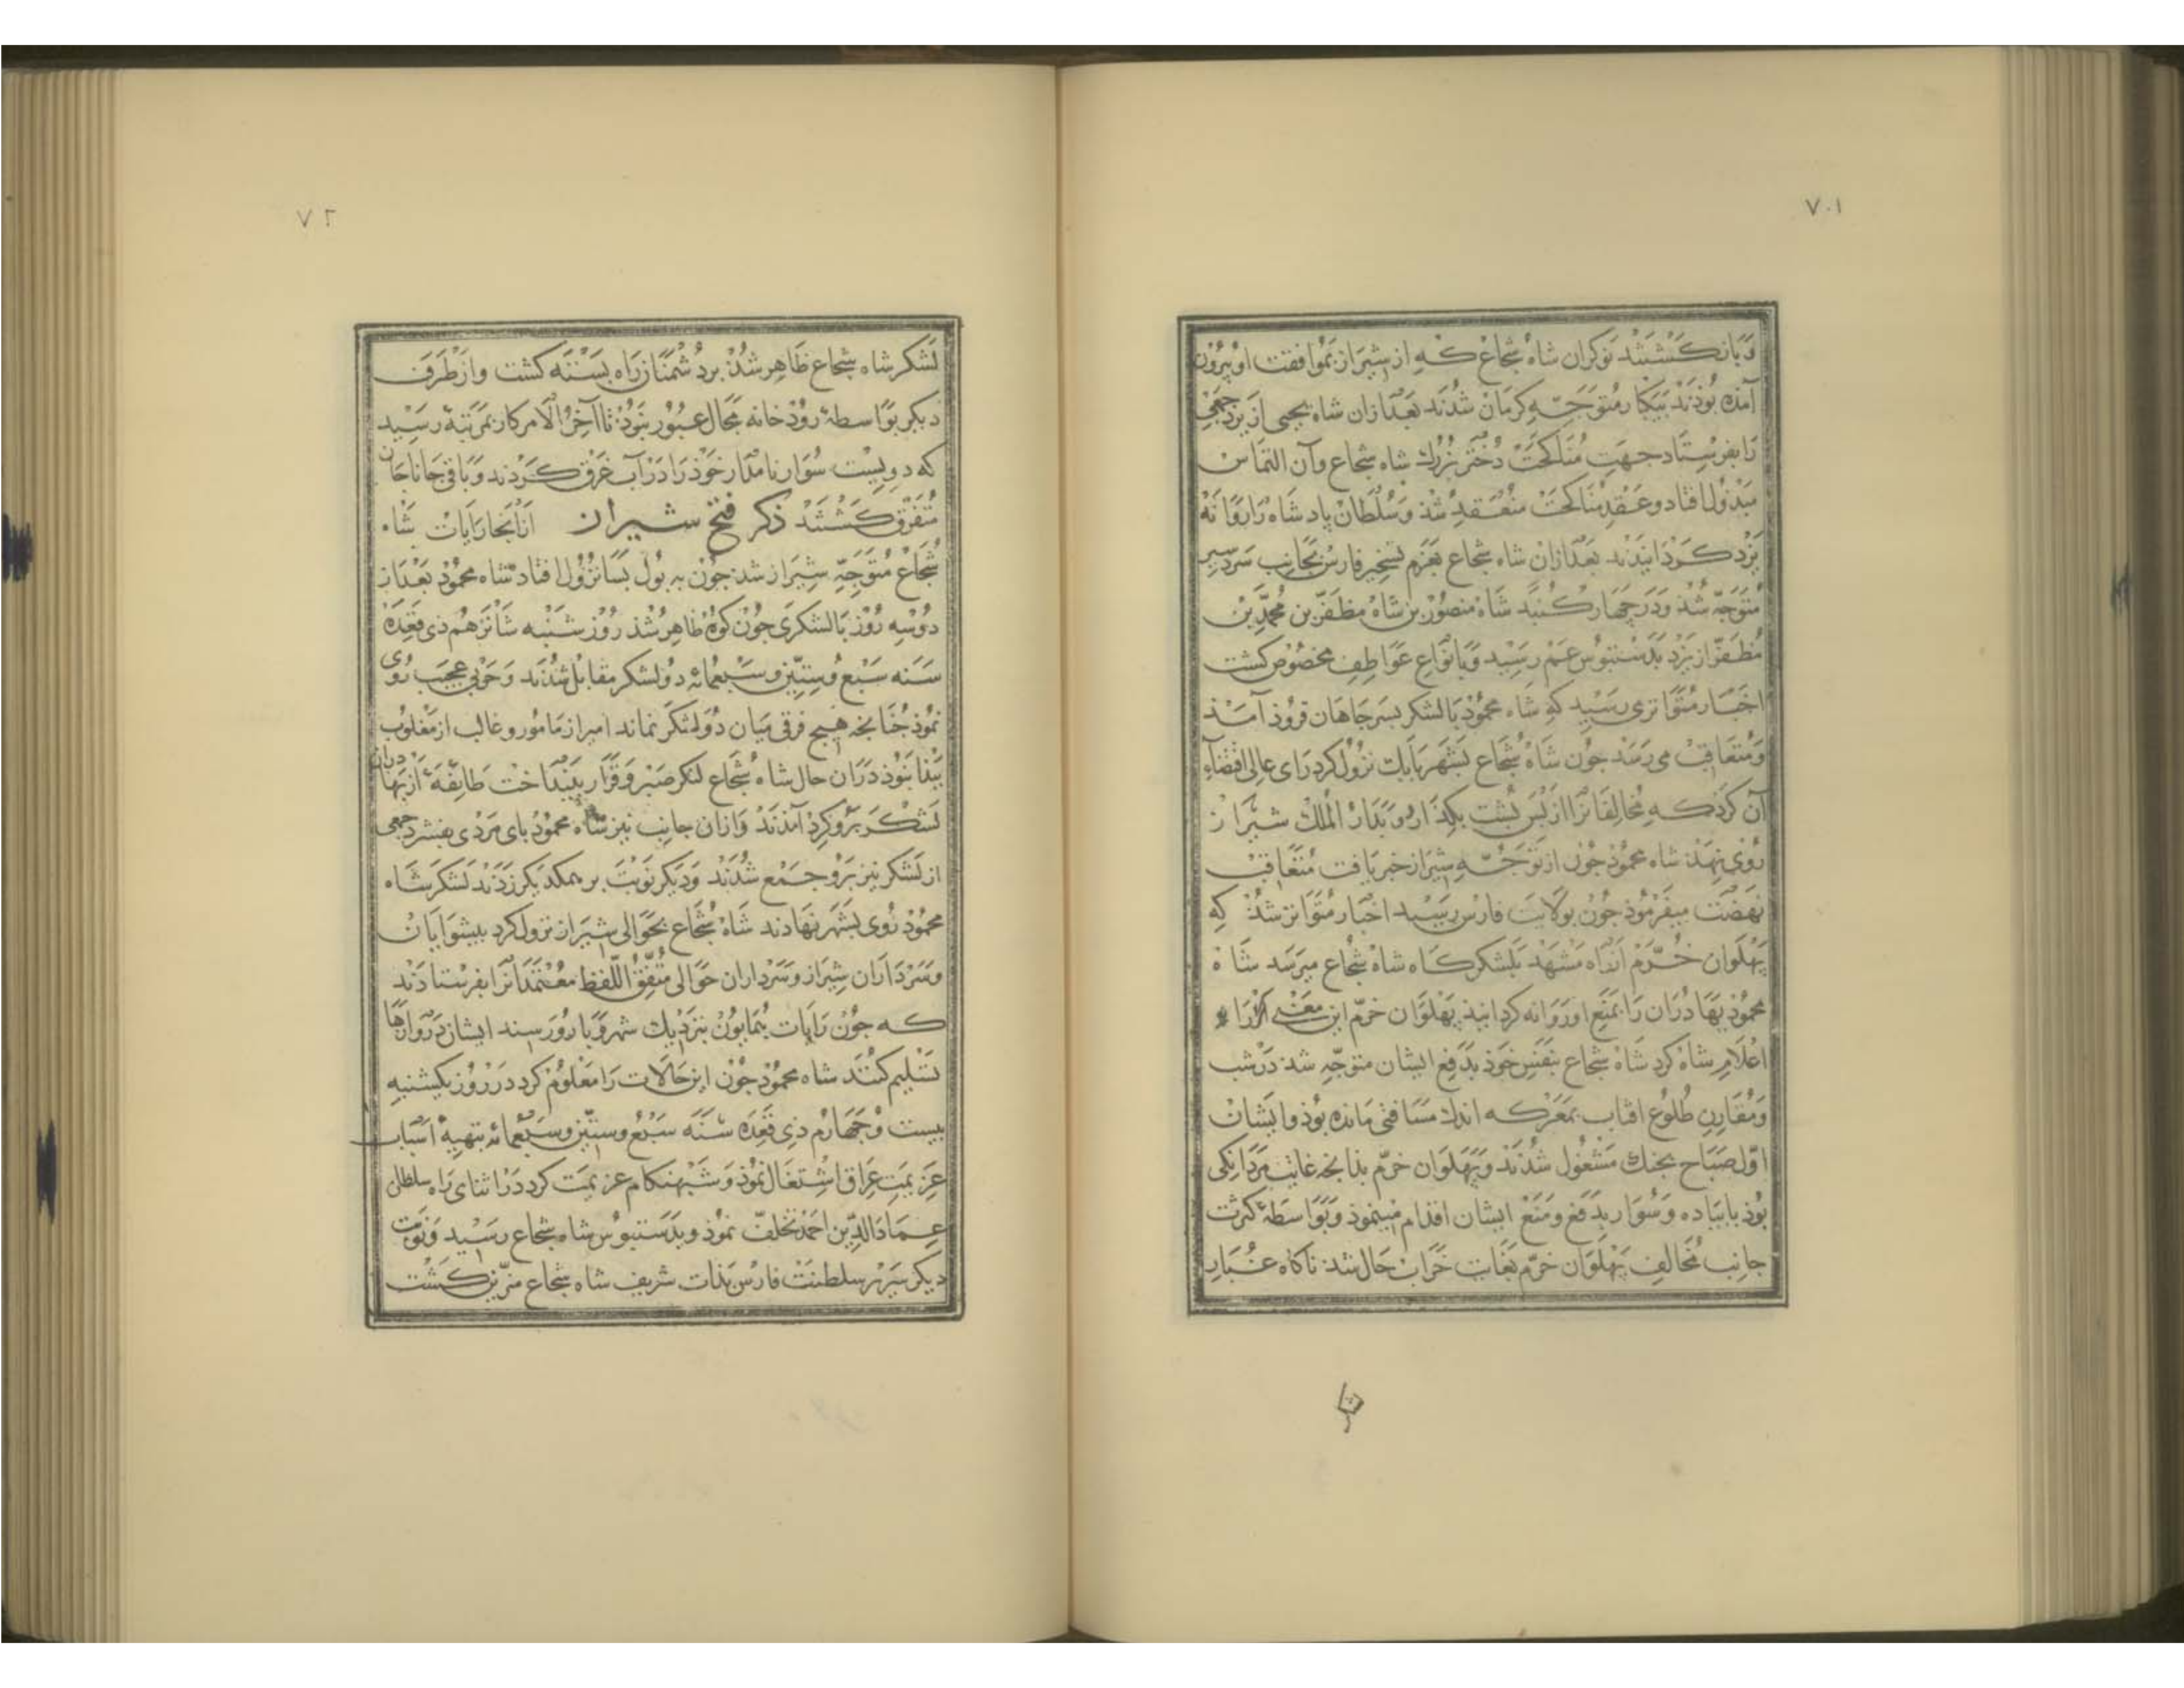 ٧٠١
و بازکشتند نوکران شاه شجاع که از شیراز بموافقت او بیرون
آمذه بوذند بیکبار متوجه کرمان شدند بعد ازان شاه یحیی از یزد جمعی
را بفرستاد جهت مناکحت دختر بزرك شاه شجاع وآن التماس
مبذول افتاد وعقد مناکحت منعقد شذ وسلطان پادشاه را روانه
یزد کردانیدند بعد ازان شاه شجاع بعزم تسخیر فارس بجانب سردسیر
متوجه شذ ودر چهار کنبد شاه منصور بن شاه مظفر بن محمد بن
مظفر از یزد بدستبوس عم رسید وبانواع عواطف مخصوص کشت
اخبار متواتر می رسید که شاه محمود با لشکر بسرجاهان فروذ آمذ
ومتعاقب می رسد جون شاه شجاع بشهر بابك نزول کرد رای عالی اقتضاء
آن کرد که مخالفانرا از بس بشت بکذارد و بدار الملك شیراز
روی نهد شاه محمود جون از توجه شیراز خبر یافت متعاقب
نهضت میفرموذ جون بولایت فارس رسید اخبار متواتر شذ که
پهلوان خرم از راه مشهد بلشکرکاه شاه شجاع میرسد شاه
محموذ بهادران را بمنع او روانه کردانیذ پهلوان خرم این معنی را
اعلام شاه کرد شاه شجاع بنفس خوذ بدفع ایشان متوجه شد در شب
ومقارن طلوع افتاب بمعرکه اندك مسافتی مانده بوذ وایشان
اول صباح بجنك مشغول شدند وپهلوان خرم بذانجه غایت مردانکی
بوذ با پیاده وسوار بدفع ومنع ایشان اقدام مینموذ وبواسطه کثرت
جانب مخالف پهلوان خرم بغایت خراب حال شد ناکاه غبار
٧٢
لشکر شاه شجاع ظاهر شذ بر دشمنان راه بسته کشت واز طرف
دیکر بواسطه روذخانه مجال عبور نبوذ تا آخر الامر کار بمرتبه رسید
که دویست سوار نامدار خوذ را در آب غرق کردند وباقی جانا جان
متفرق کشتند ذکر فتح شیراز ازانجا رایات شاه
شجاع متوجه شیراز شد جون به بول بسا نزول افتاد شاه محمود بعد از
دو سه روز با لشکری جون کوه ظاهر شذ روز شنبه شانزهم ذی قعده
سنه سبع وستین وسبعمائه دو لشکر مقابل شدند وحربی عجب روی
نموذ جنانجه هیج فرقی میان دو لشکر نماند امیر از مامور وغالب از مغلوب
پیذا نبوذ دران حال شاه شجاع لنکر صبر وقرار بینداخت طایفه ازبها دران
لشکر برو کرد آمذند وازان جانب نیز شاه محموذ بای مردی بفشرد جمعی
از لشکر نیز برو جمع شدند ودیکر نوبت بر یکدیکر زدند لشکر شاه
محمود روی بشهر نهادند شاه شجاع بحوالی شیراز نزول کرد بیشوایان
وسرداران شیراز وسرداران حوالی متفق اللفظ معتمدانرا بفرستادند
که جون رایات همایون بنزدیك شهر وبارو رسند ایشان دروازها
تسلیم کنند شاه محموذ جون این حالات را معلوم کرد در روز یکشنبه
بیست وجهارم ذی قعده سنه سبع وستین وسبعمائه بتهیه اسباب
عزیمت عراق اشتغال نموذ وشبهنکام عزیمت کرد در اثنای راه سلطان
عماد الدین احمد تخلف نموذ وبدستبوس شاه شجاع رسید ونوبت
دیکر سریر سلطنت فارس بذات شریف شاه شجاع مزین کشت